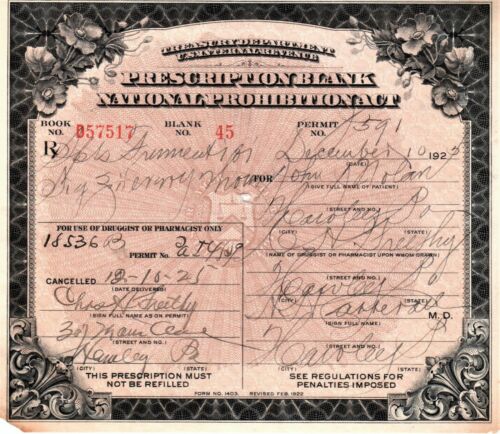 TREASURY DEPARTMENT
U.S. INTERNAL REVENUE
PRESCRIPTION BLANK
NATIONAL PROHIBITION ACT
BOOK NO. D57517 BLANK NO. 45 PERMIT NO. 591
Rx Frumenti December 10 1925
FOR John Nolan
(GIVE FULL NAME OF PATIENT)
(STREET AND NO.)
Hawley Pa
(CITY) (STATE)
FOR USE OF DRUGGIST OR PHARMACIST ONLY
18536 B
(NAME OF DRUGGIST OR PHARMACIST UPON WHOM DRAWN)
PERMIT NO.
(STREET AND NO.)
CANCELLED 12-10-25
(DATE DELIVERED)
Hawley Pa
(CITY) (STATE)
Chas
(SIGN FULL NAME AS ON PERMIT)
M. D.
(SIGN FULL NAME)
Main
(STREET AND NO.)
(STREET AND NO.)
Hawley Pa
(CITY) (STATE)
Hawley
(CITY) (STATE)
THIS PRESCRIPTION MUST
NOT BE REFILLED
SEE REGULATIONS FOR
PENALTIES IMPOSED
FORM NO. 1403. REVISED FEB. 1922